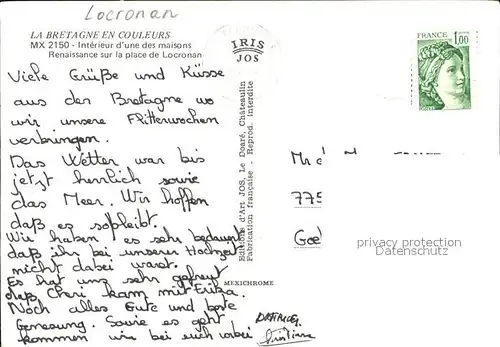 Locronan
LA BRETAGNE EN COULEURS
MX 2150 - Intérieur d'une des maisons
Renaissance sur la place de Locronan
IRIS
JOS
FRANCE
1,00
Viele Grüße und Küsse
aus der Bretagne wo
wir unsere Flitterwochen
verbringen.
Das Wetter war bis
jetzt herrlich sowie
das Meer. Wir hoffen
daß es so bleibt.
Wir haben es sehr bedauert
daß ihr bei unserer Hochzeit
nicht dabei wart.
Es hat uns sehr gefreut
daß Cheri kam mit Erika.
Noch alles Gute und beste
Genesung. Sowie es geht
kommen wir bei euch vorbei
Editions d'Art JOS, Le Doaré, Châteaulin
Fabrication française - Reprod. Interdite
MEXICHROME
775
Goe
privacy protection
Datenschutz